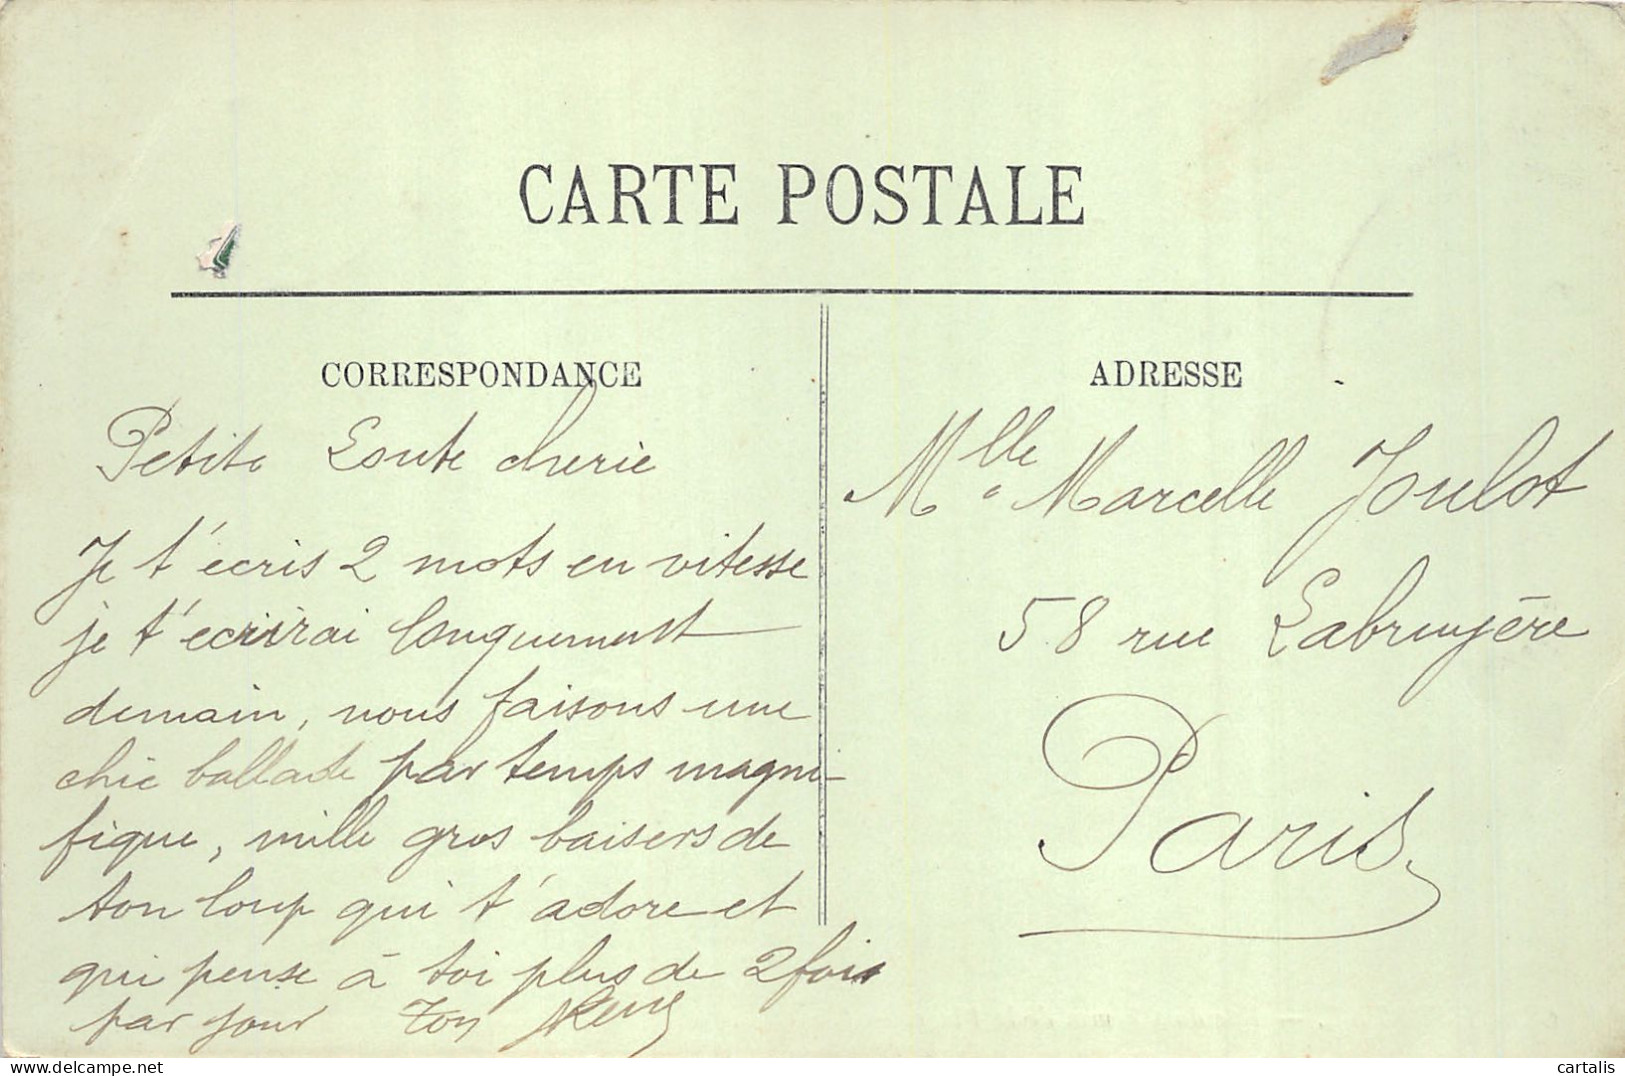 CARTE POSTALE
CORRESPONDANCE
Petite Loute cherie
Je t'écris 2 mots en vitesse
je t'ecrirai longuement
demain, nous faisons une
chic ballade par temps magni-
fique, mille gros baisers de
ton loup qui t'adore et
qui pense à toi plus de 2 fois
par jour Ton
ADRESSE
Mlle Marcelle Joulot
58 rue Labruyère
Paris
cartalis